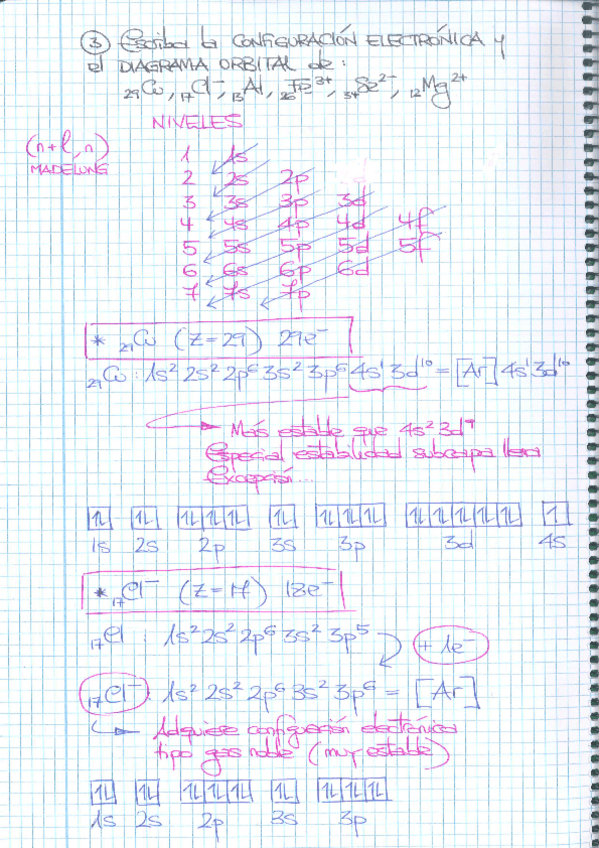 ③ Escriba la CONFIGURACIÓN ELECTRÓNICA y
el DIAGRAMA ORBITAL de:
₂₉Cu, ₁₇Cl⁻, ₁₃Al, ₂₆Fe³⁺, ₃₄Se²⁻, ₁₂Mg²⁺
NIVELES
(n+l, n)
MADELUNG
1 1s
2 2s 2p
3 3s 3p 3d
4 4s 4p 4d 4f
5 5s 5p 5d 5f
6 6s 6p 6d
7 7s 7p
* ₂₉Cu (Z=29) 29e⁻
₂₉Cu: 1s² 2s² 2p⁶ 3s² 3p⁶ 4s¹ 3d¹⁰ = [Ar] 4s¹ 3d¹⁰
Más estable que 4s² 3d⁹
Especial estabilidad subcapa llena
Excepción...
1s 2s 2p 3s 3p 3d 4s
* ₁₇Cl⁻ (Z=17) 18e⁻
₁₇Cl : 1s² 2s² 2p⁶ 3s² 3p⁵ + 1e⁻
₁₇Cl⁻: 1s² 2s² 2p⁶ 3s² 3p⁶ = [Ar]
Adquiere configuración electrónica
tipo gas noble (muy estable)
1s 2s 2p 3s 3p